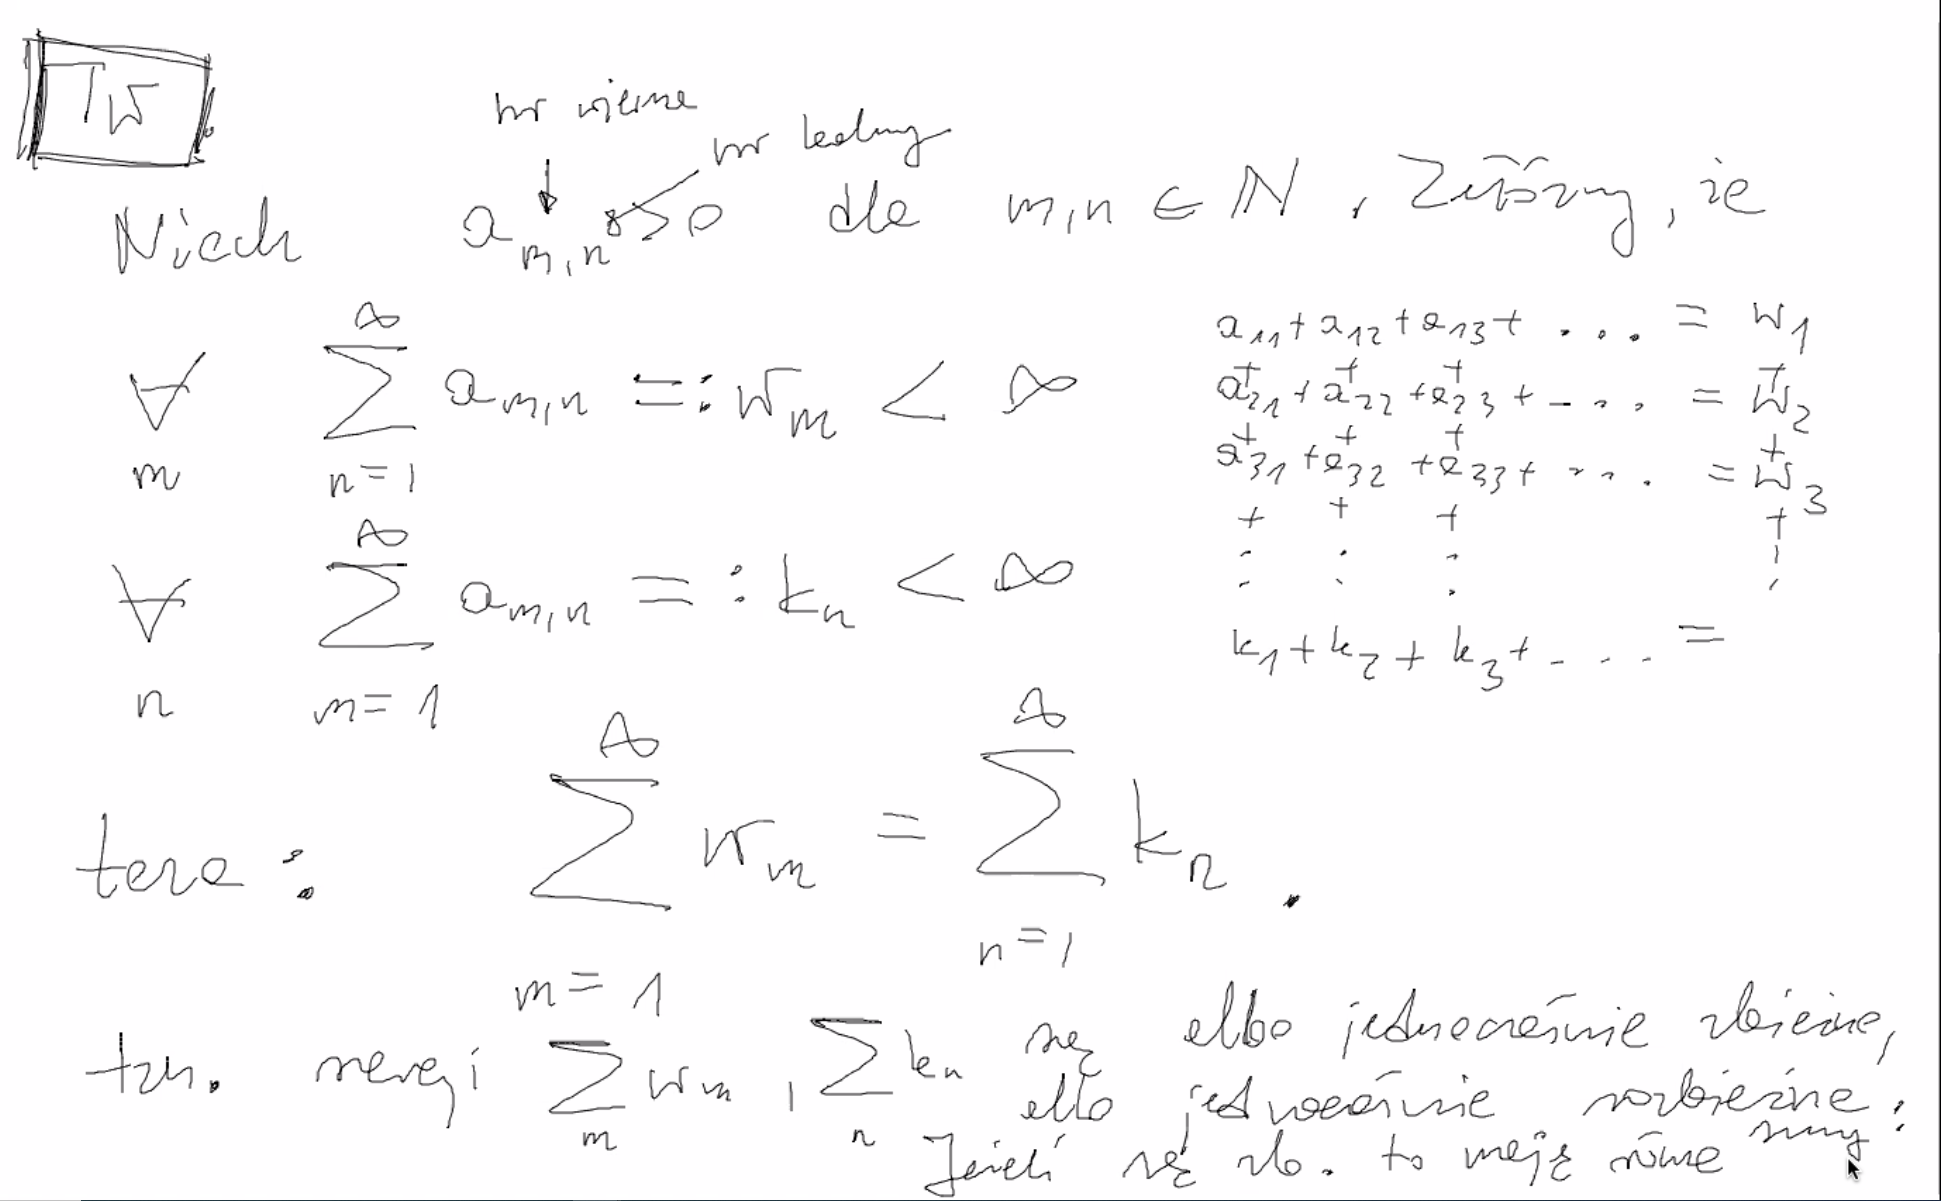 TW
nr wiersza
nr kolumny
Niech a_{m,n} > 0 dla m,n ∈ N. Załóżmy, że
∀_m ∑_{n=1}^{∞} a_{m,n} =: w_m < ∞
∀_n ∑_{m=1}^{∞} a_{m,n} =: k_n < ∞
a_{11} + a_{12} + a_{13} + .... = w_1
+ + + +
a_{21} + a_{22} + a_{23} + .... = w_2
+ + + +
a_{31} + a_{32} + a_{33} + .... = w_3
+ + + +
: : : :
k_1 + k_2 + k_3 + .... =
teza: ∑_{m=1}^{∞} w_m = ∑_{n=1}^{∞} k_n.
tzn. szeregi ∑_m w_m, ∑_n k_n są albo jednocześnie zbieżne,
albo jednocześnie rozbieżne.
Jeżeli są zb. to mają równe sumy